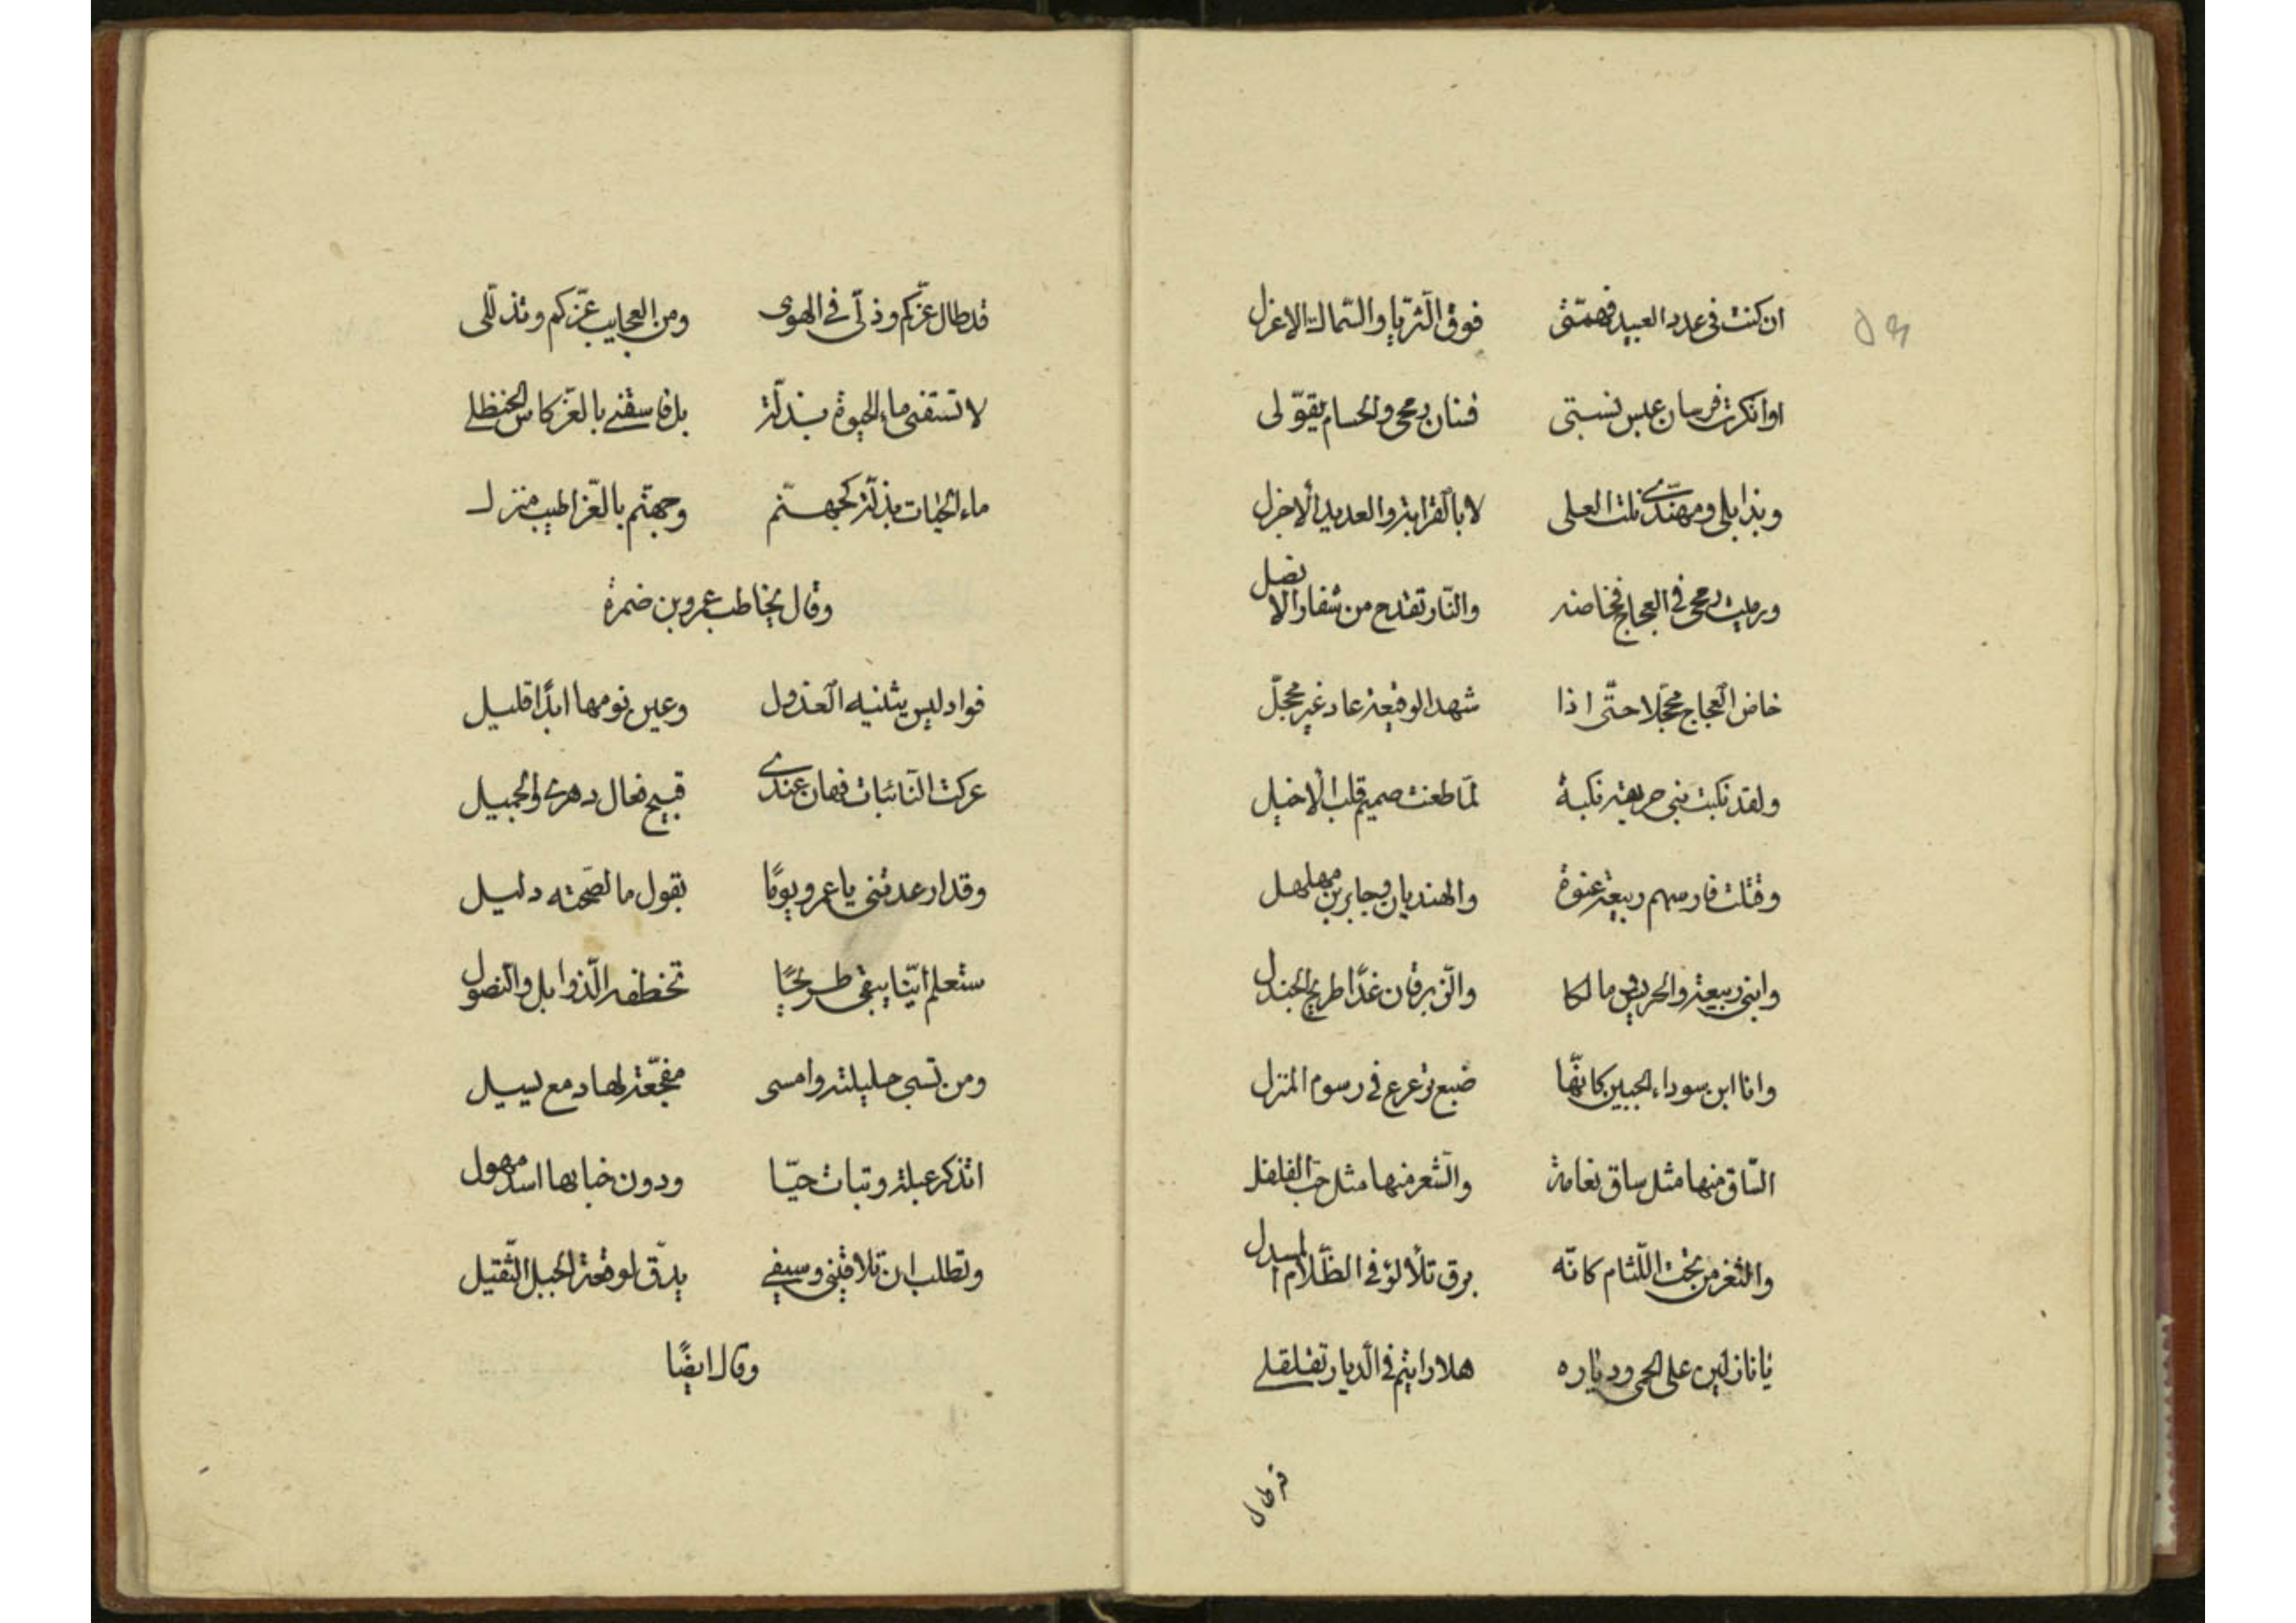 ان كنت فى عدد العبيد فهمّتى فوق الثريّا والسّماك الاعزل
او انكرت فرسان عبس نسبتى فسنان رمحى والحسام يقوّلى
وبذابلى ومهنّدى نلت العلى لا بالقرابة والعديد الاجزل
ورميت رمحى فى العجاج فخاضه والنّار تقدح من شفار الانصل
خاض العجاج محجّلا حتّى اذا شهد الوقيعة عاد غير محجّل
ولقد نكبت بنى حريقة نكبة لمّا طعنت صميم قلب الاخيل
وقتلت فارسهم ربيعة عنوة والهنديان وجابر بن مهلهل
وابنى ربيعة والحريش ومالكا والزّبرقان غدًا طريح الجندل
وانا ابن سوداء الجبين كانّها ضبع ترعرع فى رسوم المنزل
السّاق منها مثل ساق نعامة والشّعر منها مثل حبّ الفلفل
والثّغر من تحت اللّثام كانّه برق تلألؤ فى الظّلام المسدل
يا نازلين على الحمى ودياره هلا رايتم فى الدّيار تقلقلى
قد طال
قد طال عزّكم وذلّى فى الهوى ومن العجايب عزّكم وتذلّلى
لا تسقنى ماء الحيوة بذلّة بل فاسقنى بالعزّ كاس الحنظلى
ماء الحيات بذلّة كجهنّم وجهنّم بالعّز اطيب منزل
وقال يخاطب عمرو بن ضمرة
فواد ليس يثنيه العذول وعين نومها ابدًا قليل
عركت النّائبات فهان عندى قبيح فعال دهرى والجميل
وقد ارعدتنى يا عمرو يومًا بقول ما لصّحته دليل
ستعلم ايّنا يبقى طريحًا تخطفه الذّوابل والنّصول
ومن تسبى حليلته وامسى مفجّعة لها دمع يسيل
اتذكر عبلة وتبات حيّا ودون خباىها اسد مهول
وتطلب ان تلاقينى وسيفى يدّق لوقعة الجبل الثّقيل
وقال ايضًا